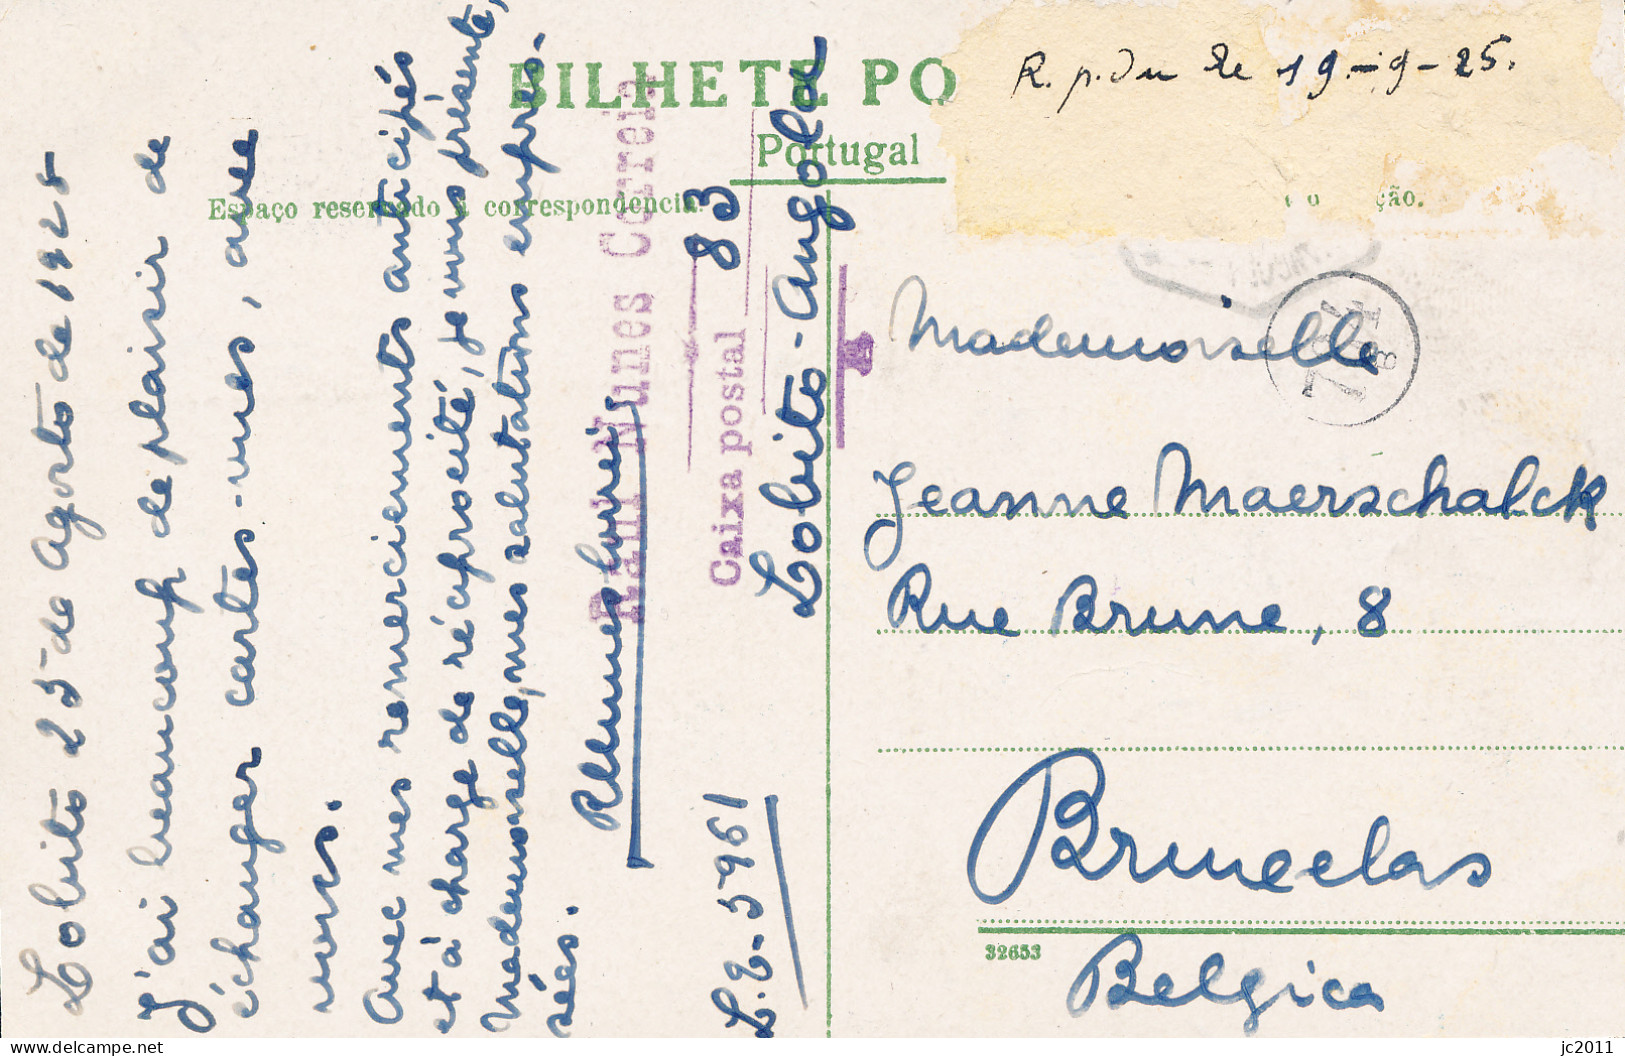 BILHETE PO
Portugal
Espaço reservado á correspondencia.
ção.
R. p. du 19-9-25.
Lobito 25 de Agosto de 1925
J'ai beaucoup de plaisir de
échanger cartes-vues, avec
vous.
Avec mes remerciements anticipés
et à charge de réciprocité, je vous présente,
Mademoiselle, mes salutations empres-
sées.
Raul Nunes Correia
Caixa postal 83
Lobito-Angola
L.E-5961
Mademoiselle
Jeanne Maerschalck
Rue Brune, 8
Bruxelas
Belgica
32653
delcampe.net
jc2011